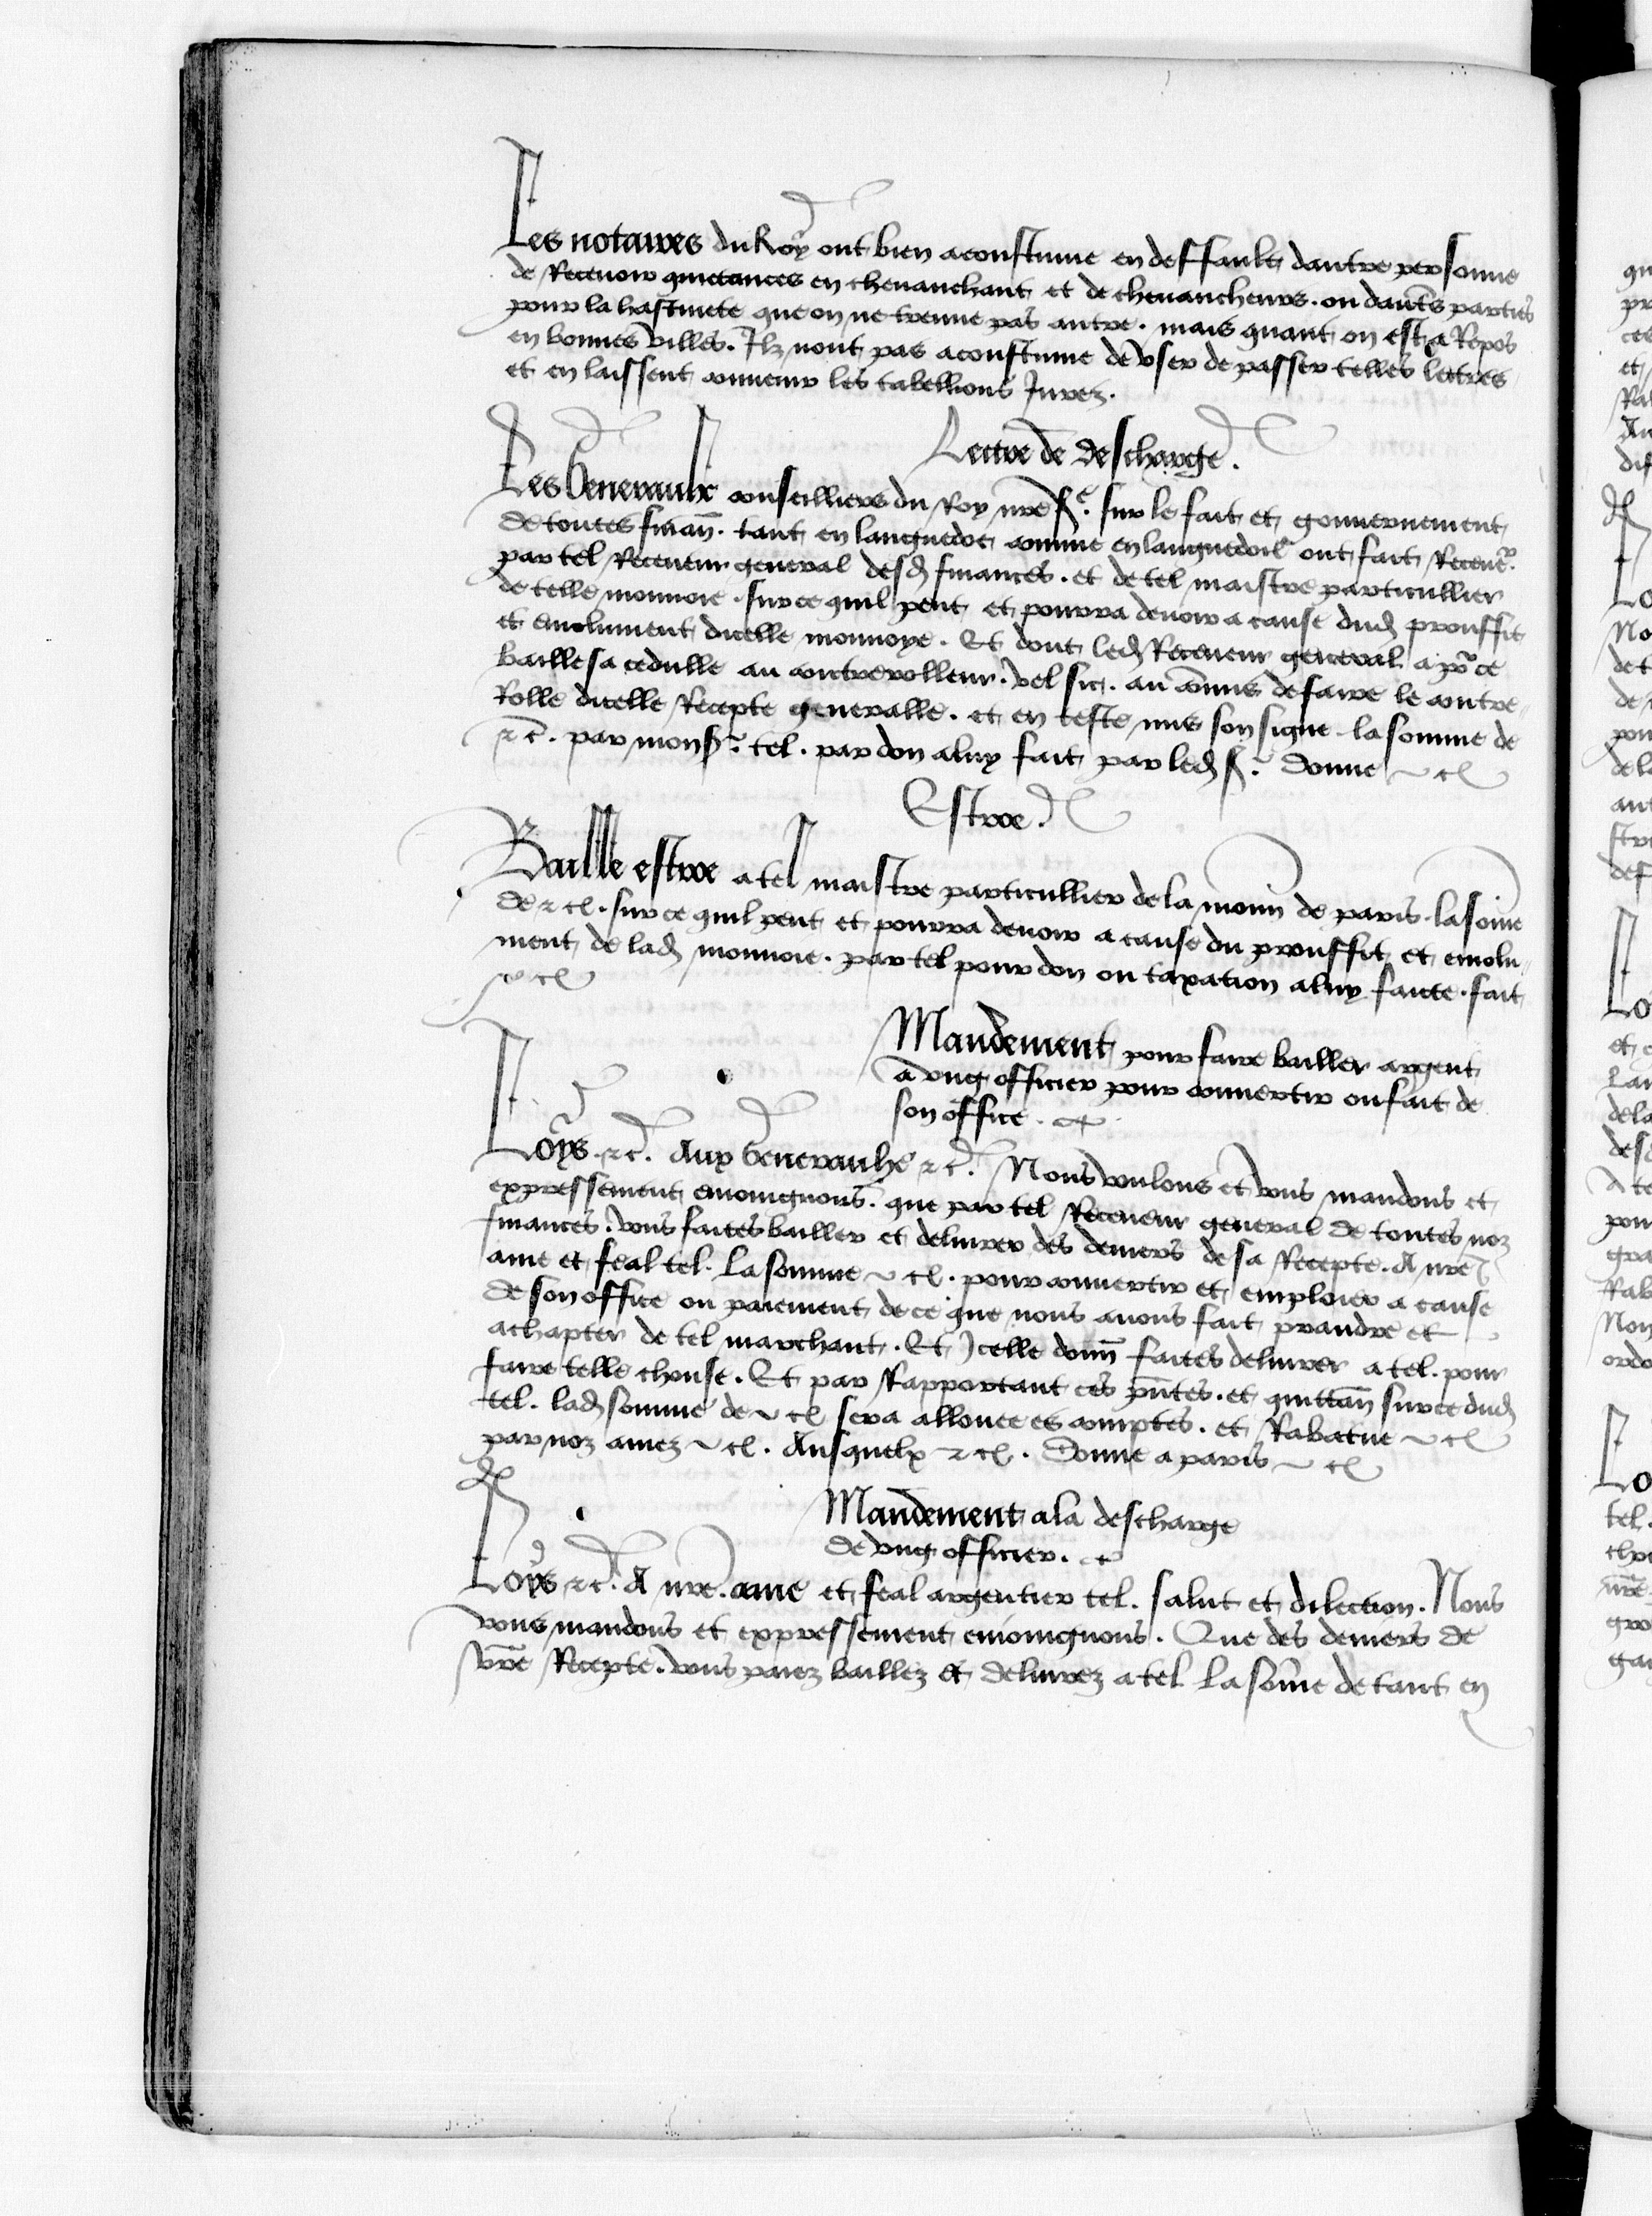 Les notaires du Roy ont bien acoustume en deffault dautre personne
de Recevoir quictances en chevauchant et de chevaucheurs. ou dautres parties
pour la hastivete que on ne treuve pas autre. mais quant on est a Repos
en bonnes villes. Ilz nont pas acoustume de user de passer telles lectres
et en laissent convenir les tabellions Jurez.
Lectre de descharge.
Les generaulx conseilliers du Roy nre sr. sur le fait et gouvernement
de toutes finan. tant en languedoc comme en languedoil ont fait Recevr.
par tel Receveur general desd finances. et de tel maistre particullier
de telle monnoie. sur ce quil peut et pourra devoir a cause dud prouffit
et emolument dicelle monnoye. Et dont led Receveur general a por ce
baille sa cedulle au contrerolleur. vel sic. au comis de faire le contre-
Rolle dicelle Recepte generalle. et en ceste mis son signe la somme de
etc. par monsr. tel. par don a luy fait par led sr. Donne etc
Estroe.
Baille estroe a tel maistre particullier de la monn de paris. la some
de etc. sur ce quil peut et pourra devoir a cause du prouffit et emolu-
ment de lad monnoie. par tel pour don ou taxation a luy faicte. fait
etc
Mandement pour faire bailler argent
a ung officier pour convertir ou fait de
son office.
Loys etc. Aux generaulx etc. Nous voulons et vous mandons et
expressement enioignons. que par tel Receveur general de toutes noz
finances. vous faites bailler et delivrer des deniers de sa Recepte. A nre
ame et feal tel. La somme etc. pour convertir et emploier a cause
de son office ou paiement de ce que nous avons fait prandre et
achapter de tel marchant. Et Icelle donn faites delivrer a tel. pour
faire telle chouse. Et par Rapportant ces pntes. et quittan sur ce dud
tel. lad somme de etc sera allouee es comptes. et Rabatue etc
par noz amez etc. Ausquelx etc. Donne a paris etc
Mandement a la descharge
de ung officier.
Loys etc. A nre. ame et feal argentier tel. salut et dilection. Nous
vous mandons et expressement enioignons. Que des deniers de
vre Recepte. vous paiez baillez et delivrez a tel La some de tant en